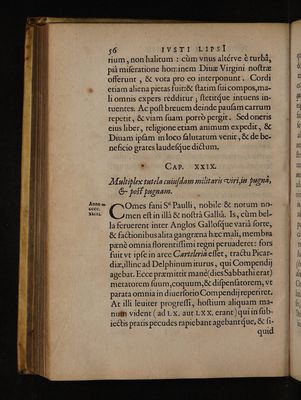 56 IVSTI LIPSI
rium, non halitum : cùm vnus altérve è turbâ,
piâ miseratione hominem Diuæ Virgini nostræ
offerunt, & vota pro eo interponunt. Cordi
etiam aliena pietas fuit: & statim sui compos, ma-
li omnis expers redditur ; stetitque intuens in-
tuentes. Ac post breuem deinde pausam carrum
repetit, & viam suam porrò pergit. Sed oneris
eius liber, religione etiam animum expedit, &
Diuam ipsam in loco salutatum venit, & de be-
neficio grates laudesque dictum.
CAP. XXIX.
Multiplex tutela cuiusdam militaris viri, in pugnâ,
& post pugnam.
COmes fani Sti Paulli, nobile & notum no-
men est in illâ & nostrâ Galliâ. Is, cùm bel-
la feruerent inter Anglos Gallosque variâ sorte,
& factionibus alita gangræna hæc mali, membra
pænè omnia florentissimi regni peruaderet: fors
fuit vt ipse in arce Carteleria esset, tractu Picar-
diæ, illinc ad Delphinum iturus, qui Compendij
agebat. Ecce præmittit manè (dies Sabbathi erat)
metatorem suum, coquum, & dispensatorem, vt
parata omnia in diuersorio Compendij reperiret.
At illi leuiter progressi, hostium aliquam ma-
num vident (ad LX. aut LXX. erant) qui in sub-
iectis pratis pecudes rapiebant agebantque, & si-
quid